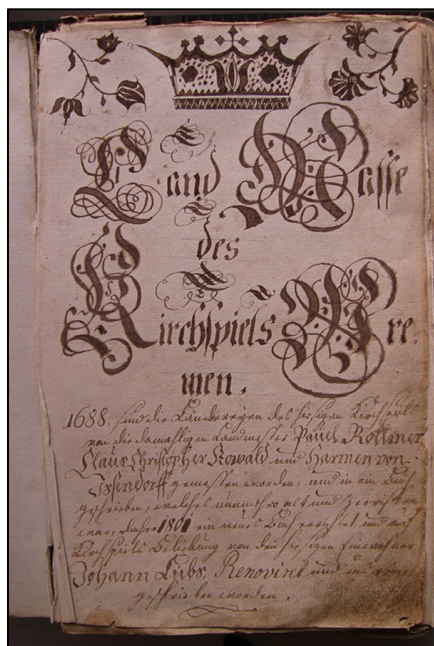 Land Masse
des
Kirchspiels Wre-
men.
1688. sind die Ländereyen des hiesigen Kirchspiels
von die damahligen Landmesser Paul Rottmer
Claus Christopher Kowald und Harmen von
Issendorff gemessen worden, und in ein Buch
geschrieben, welches nunmehro alt und zerrissen
war, daher 1801 ein neues Buch verfertiget und auf
Kirchspiels Beliebung von den hiesigen Einwohner
Johann Lübs, Renovirt und
geschrieben worden.